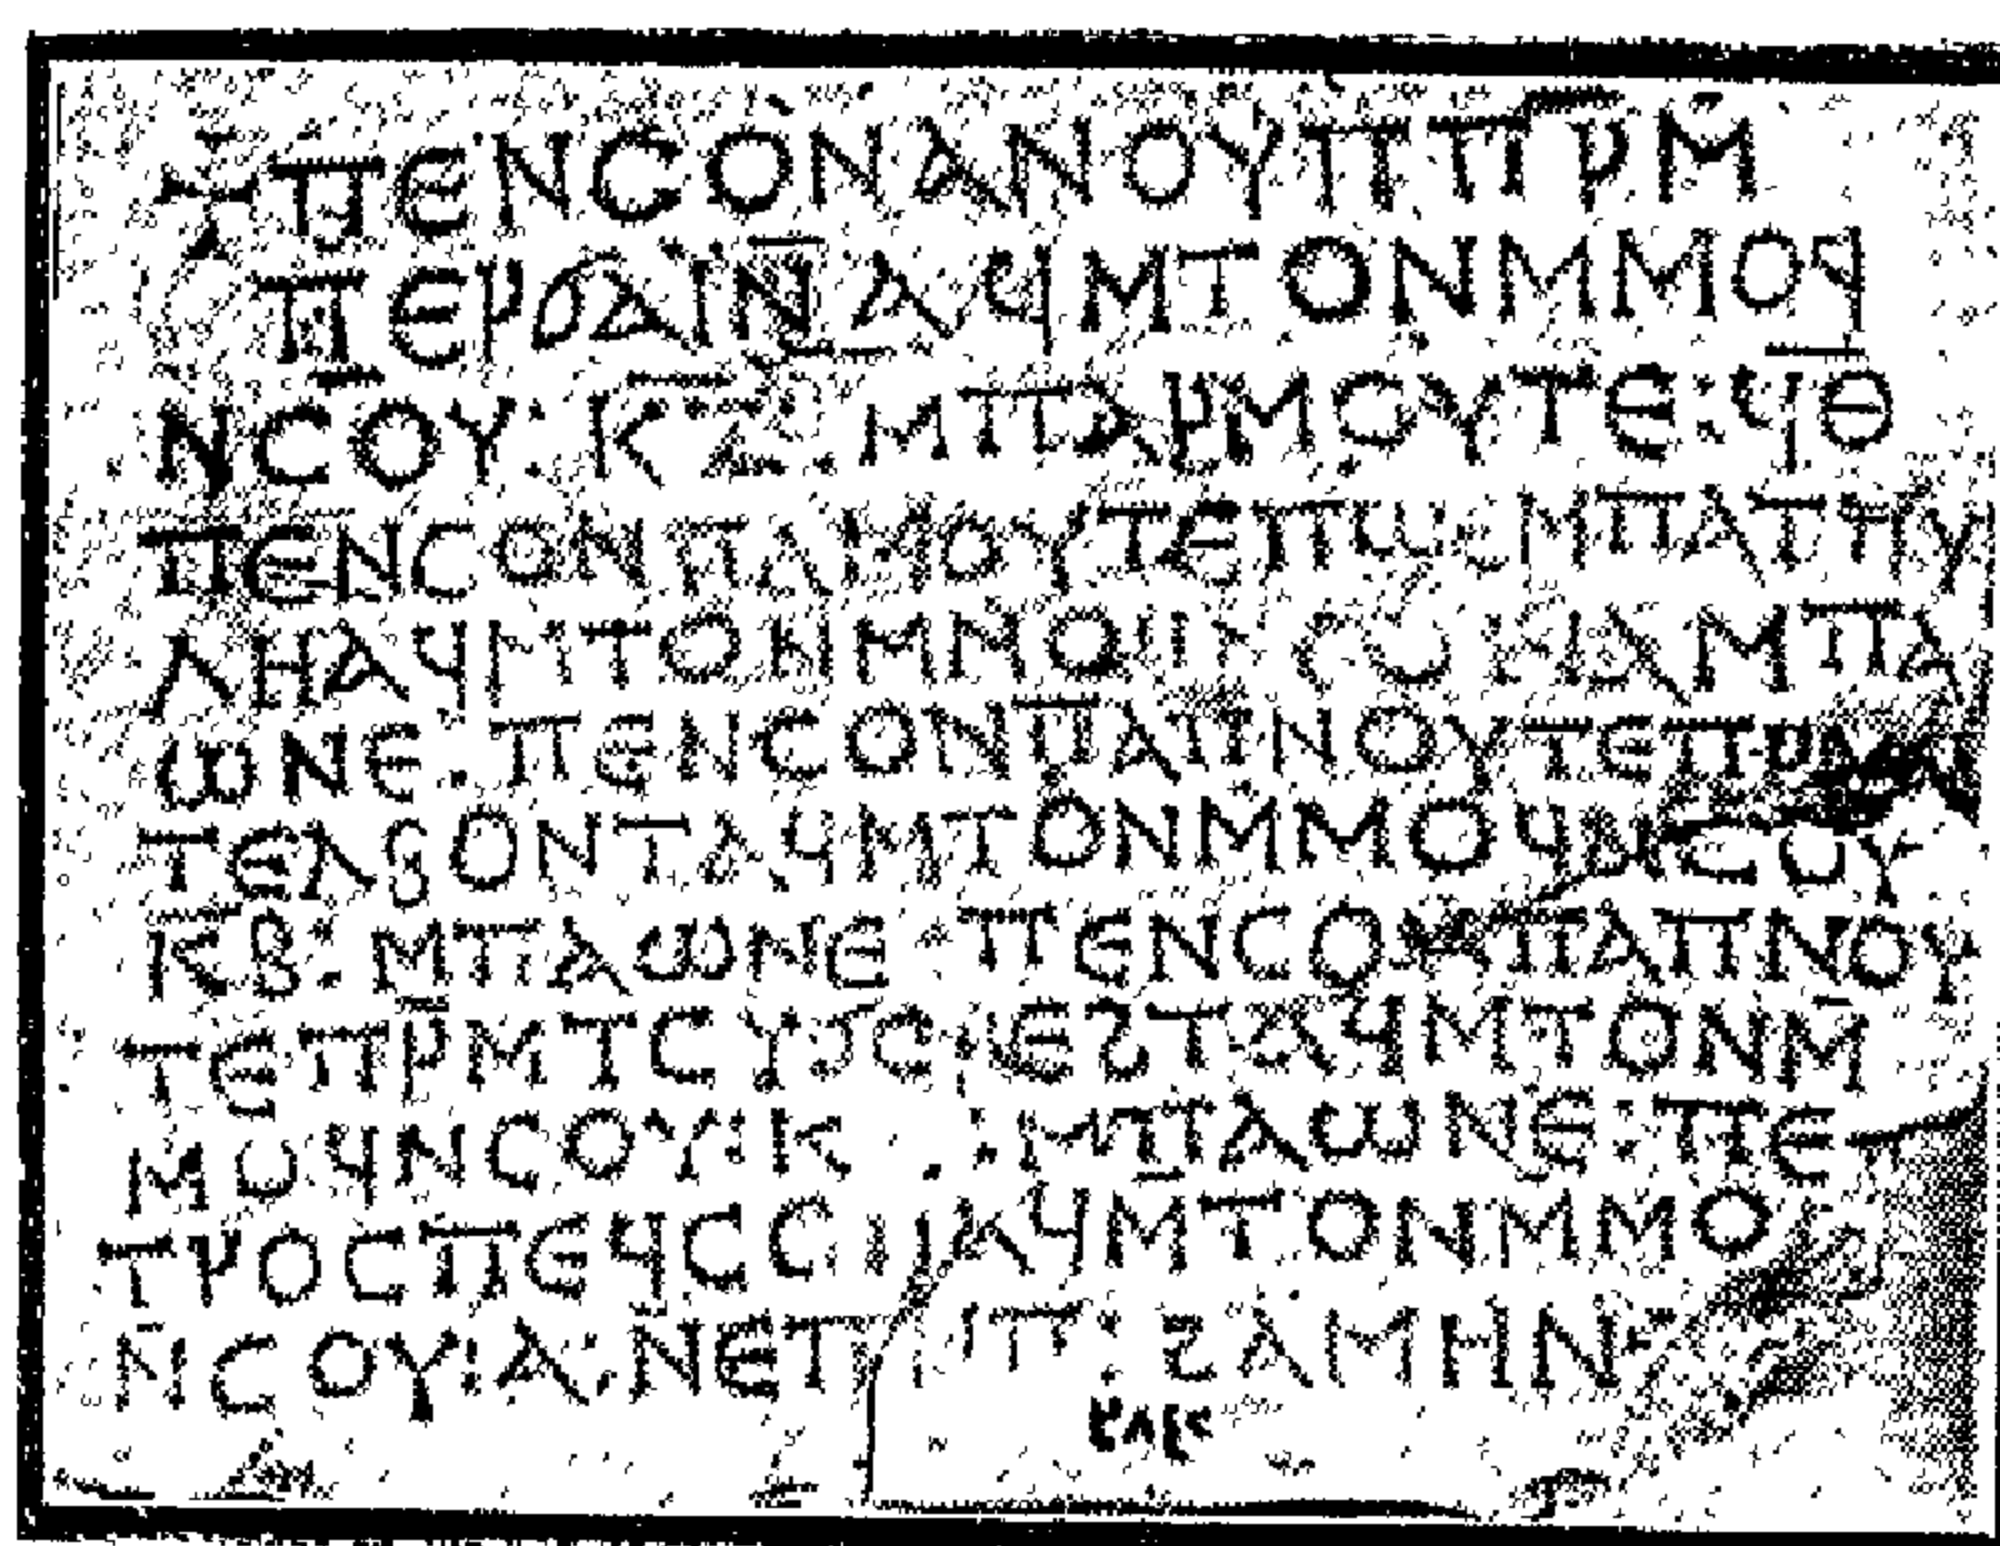 ⲡⲉⲛⲥⲟⲛⲁⲛⲟⲩⲡⲡⲣⲙ
ⲡⲉⲣϭⲁⲓⲛⲁϥⲙⲧⲟⲛⲙⲙⲟϥ
ⲛⲥⲟⲩ ⲙⲡⲁⲣⲙⲟⲩⲧⲉ:ϥⲑ
ⲡⲉⲛⲥⲟⲛⲡⲁⲙⲟⲩⲧⲉⲡⲱ
ⲗⲏⲁϥⲙⲧⲟⲛⲙⲙⲟϥ ⲙⲡⲁ
ⲱⲛⲉ·ⲡⲉⲛⲥⲟⲛⲡⲁⲡⲛⲟⲩⲧⲉⲡⲣⲙ
ⲧⲉⲗϩⲟⲛⲧⲁϥⲙⲧⲟⲛⲙⲙⲟϥⲛⲥⲟⲩ
ⲕⲃ:ⲙⲡⲁⲱⲛⲉ ⲡⲉⲛⲥⲟⲛⲡⲁⲡⲛⲟⲩ
ⲧⲉⲡⲣⲙⲧⲥ ⲁϥⲙⲧⲟⲛⲙ
ⲙⲟϥⲛⲥⲟⲩ:ⲕ :ⲙⲡⲁⲱⲛⲉ:ⲡⲉ
ⲧⲣⲟⲥⲡⲉϥⲥ ⲁϥⲙⲧⲟⲛⲙⲙⲟ
ⲛⲥⲟⲩ:ⲁ:ⲛⲉⲧ ϩⲁⲙⲏⲛ